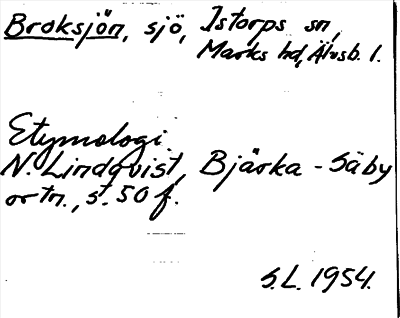 Broksjön, sjö, Istorps sn,
Marks hd, Älvsb. l.
Etymologi.
N. Lindqvist, Bjärka-Säby
ortn., s. 50 f.
S.L. 1954.